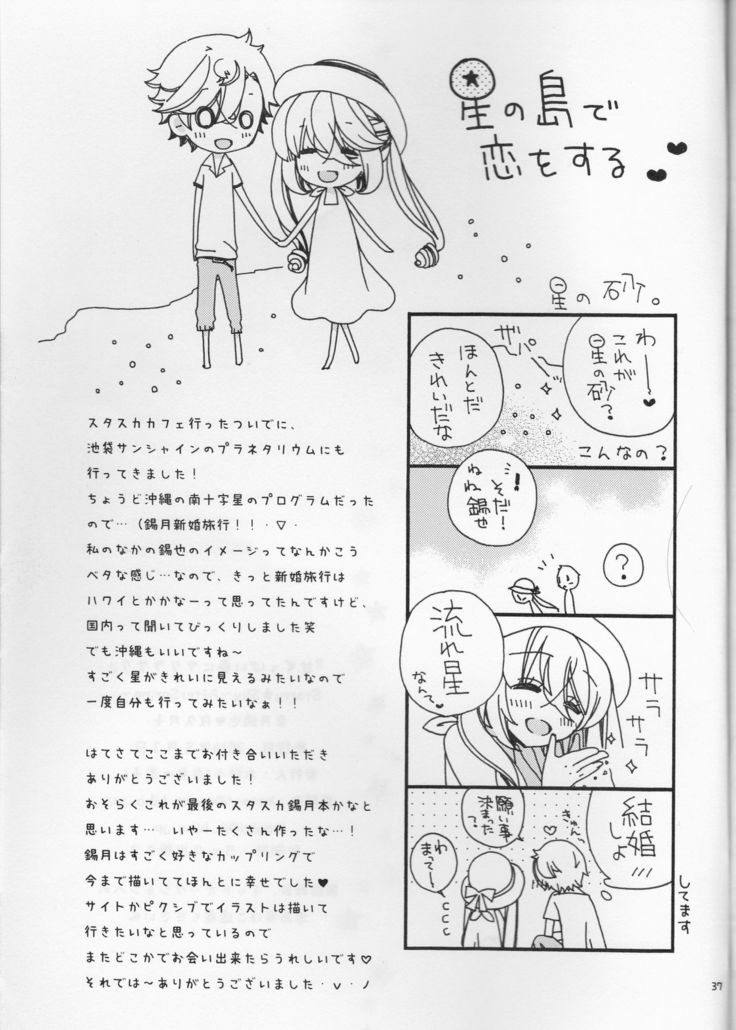 星の島で
恋をする
星の砂。
わーー♥
これが
星の砂?
ザパ。
ほんとだ
きれいだな
こんなの?
!
そだ!
ねね
錫也
?
流れ星
なんて♥
サラ
サラ
願い事
決まった?
きゅん
結婚
しよ
わ
まってー!
してます
スタスカカフェ行ったついでに、
池袋サンシャインのプラネタリウムにも
行ってきました!
ちょうど沖縄の南十字星のプログラムだった
ので…(錫月新婚旅行!!・▽・
私のなかの錫也のイメージってなんかこう
ベタな感じ…なので、きっと新婚旅行は
ハワイとかかなーって思ってたんですけど、
国内って聞いてびっくりしました笑
でも沖縄もいいですね~
すごく星がきれいに見えるみたいなので
一度自分も行ってみたいなぁ!!
はてさてここまでお付き合いいただき
ありがとうございました!
おそらくこれが最後のスタスカ錫月本かなと
思います… いやーたくさん作ったな…!
錫月はすごく好きなカップリングで
今まで描いててほんとに幸せでした♥
サイトかピクシブでイラストは描いて
行きたいなと思っているので
またどこかでお会い出来たらうれしいです♡
それでは~ありがとうございました・v・ノ
37